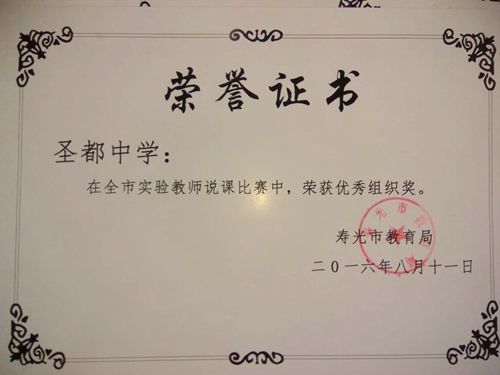 荣誉证书
圣都中学：
在全市实验教师说课比赛中，荣获优秀组织奖。
寿光市教育局
二0一六年八月十一日